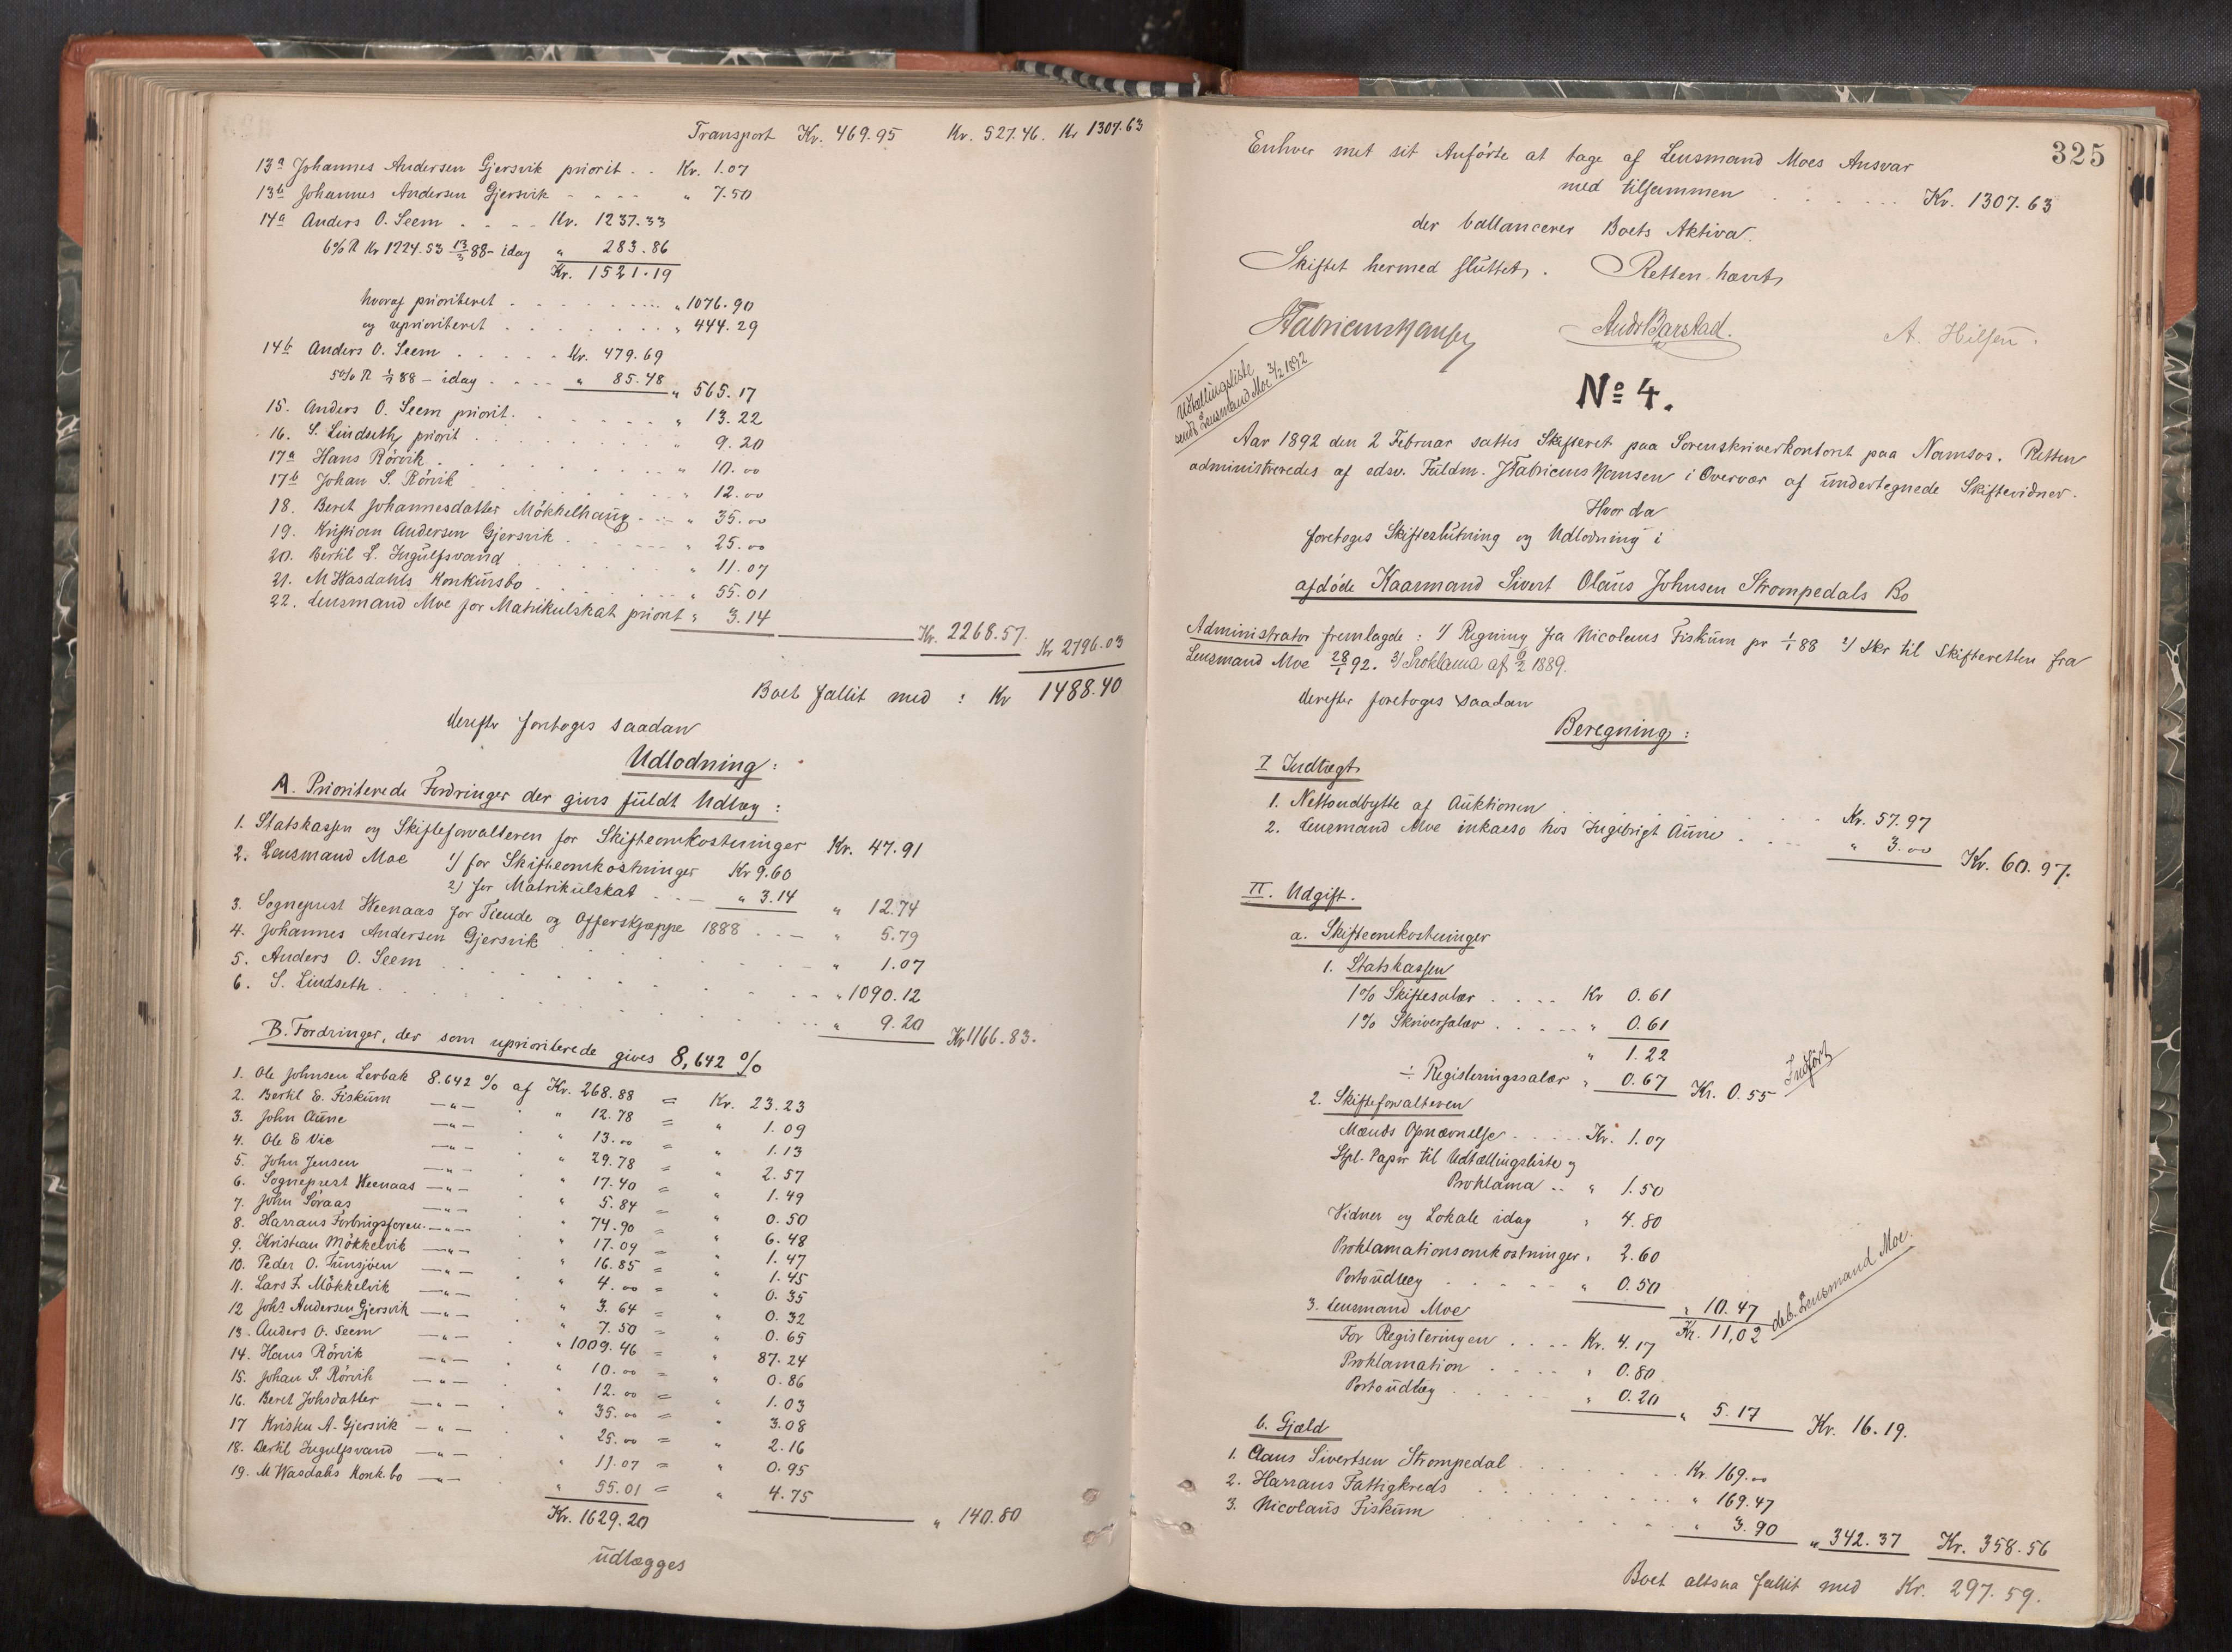 Transport Kr. 469.95 Kr. 527.46. Kr 1307.63
13a Johannes Andersen Gjersvik priorit . . Kr. 1.07
13b Johannes Andersen Gjersvik - - - - " 7.50
14a Anders O. Seem . - - - Kr. 1237.33
6% R Kr 1224.53 13/3 88 - idag " 283.86
Kr. 1521.19
hvoraf prioriteret . . . . . . . . " 1076.90
og uprioriteret . . . . . . . " 444.29
14b Anders O. Seem . . . . . Kr. 479.69
5% R 1/7 88 - idag . . . . " 85.48 " 565.17
15. Anders O. Seem priorit. . . . . . " 13.22
16. S. Lindseth priorit . . . . . . . " 9.20
17a Hans Rörvik . . . . . . . " 10.00
17b Johan S. Rörvik . . . . . . . " 12.00
18. Beret Johannesdatter Mökkelhaug . - - " 35.00
19. Kristian Andersen Gjersvik . . - - - " 25.00
20. Bertil L. Ingulfsvand . . . . . " 11.07
21. M Wasdahls Konkursbo . . . . . " 55.01
22. Lensmand Moe for Matrikulskat priorit " 3.14
Kr. 2268.57. Kr 2796.03
Boet fallit med : Kr 1488.40
derefter foretoges saadan
Udlodning:
A. Prioriterede Fordringer der gives fuldt Udlæg:
1. Statskassen og Skifteforvalteren for Skifteomkostninger Kr. 47.91
2. Lensmand Moe 1) for Skifteomkostninger Kr 9.60
2) for Matrikulskat . . - " 3.14 " 12.74
3. Sogneprest Heenaas for Tiende og Offerskjæppe 1888 . . - " 5.79
4. Johannes Andersen Gjersvik . . . . " 1.07
5. Anders O. Seem . . . . . . " 1090.12
6. S. Lindseth . . . . . . . " 9.20 Kr 1166.83.
B. Fordringer, der som uprioriterede gives 8,642 %
1. Ole Johnsen Lerbak 8.642 % af Kr. 268.88 = Kr. 23.23
2. Bertil E. Fiskum —"— " 12.78 = " 1.09
3. John Aune —"— " 13.00 = " 1.13
4. Ole E Vie —"— " 29.78 = " 2.57
5. John Jensen —"— " 17.40 = " 1.49
6. Sogneprest Heenaas —"— " 5.84 = " 0.50
7. John Soraas —"— " 74.90 = " 6.48
8. Harrans Forbrugsforen. —"— " 17.09 = " 1.47
9. Kristian Mökkelvik —"— " 16.85 = " 1.45
10. Peder O. Tunsjöen —"— " 4.00 = " 0.35
11. Lars F. Mökkelvik —"— " 3.64 = " 0.32
12 Johs Andersen Gjersvik —"— " 7.50 = " 0.65
13. Anders O. Seem —"— " 1009.46 = " 87.24
14. Hans Rörvik —"— " 10.00 = " 0.86
15. Johan S. Rörvik —"— " 12.00 = " 1.03
16. Beret Johsdatter —"— " 35.00 = " 3.08
17 Kristen A. Gjersvik —"— " 25.00 = " 2.16
18. Bertil Ingulfsvand —"— " 11.07 = " 0.95
19. M Wasdahls Konk.bo —"— " 55.01 = " 4.75
Kr. 1629.20 " 140.80
udlægges
325
Enhver met sit Anförte at tage af Lensmand Moes Ansvar
med tilsammen . . . . . . Kr. 1307.63
der ballancerer Boets Aktiva.
Skiftet hermed sluttet. Retten hævet
JFabriciusHansen Andr Barstad. A. Hilsen.
Udtællingsliste
sendt Lensmand Moe 3/2 1892
No 4.
Aar 1892 den 2 Februar sattes Skifteret paa Sorenskriverkontoret paa Namsos. Retten
administreredes af edsv. Fuldm. JFabricius Hansen i Overvær af undertegnede Skiftevidner.
Hvor da
foretoges Skifteslutning og Udlodning i
afdöde Kaarmand Sivert Olaus Johnsen Strompedals Bo
Administrator fremlagde: 1) Regning fra Nicolaus Fiskum pr 1/1 88 2) Skr til Skifteretten fra
Lensmand Moe 28/1 92. 3) Proklama af 9/2 1889.
derefter foretoges saadan
Beregning:
I Indtægt
1. Nettoudbytte af Auktionen . . . . . . Kr. 57.97
2. Lensmand Moe inkasso hos Ingebrigt Aune . . . " 3.00 Kr. 60.97.
II. Udgift.
a. Skifteomkostninger
1. Statskassen
1% Skiftesalær . . . . Kr 0.61
1% Skriversalær . . . . . " 0.61
" 1.22
÷ Registeringssalær " 0.67 Kr. 0.55
Indfört
2. Skifteforvalteren
Mænds Opnævnelse . . . . . Kr. 1.07
Stpl. Papir til Udtællingsliste og
Proklama . . " 1.50
Vidner og Lokale idag " 4.80
Proklamationsomkostninger " 2.60
Portoudlæg . . . . . " 0.50 " 10.47
Kr. 11,02
deb. Lensmand Moe.
3. Lensmand Moe
For Registeringen . . . . Kr. 4.17
Proklamation . . . . " 0.80
Portoudlæg . . . . . " 0.20 " 5.17 Kr. 16.19.
b. Gjæld
1. Claus Sivertsen Strompedal . . . . . . Kr. 169.00
2. Harrans Fattigkreds . . . . . . " 169.47
3. Nicolaus Fiskum . . . . . . " 3.90 " 342.37 Kr. 358.56
Boet altsaa fallit med Kr. 297.59.